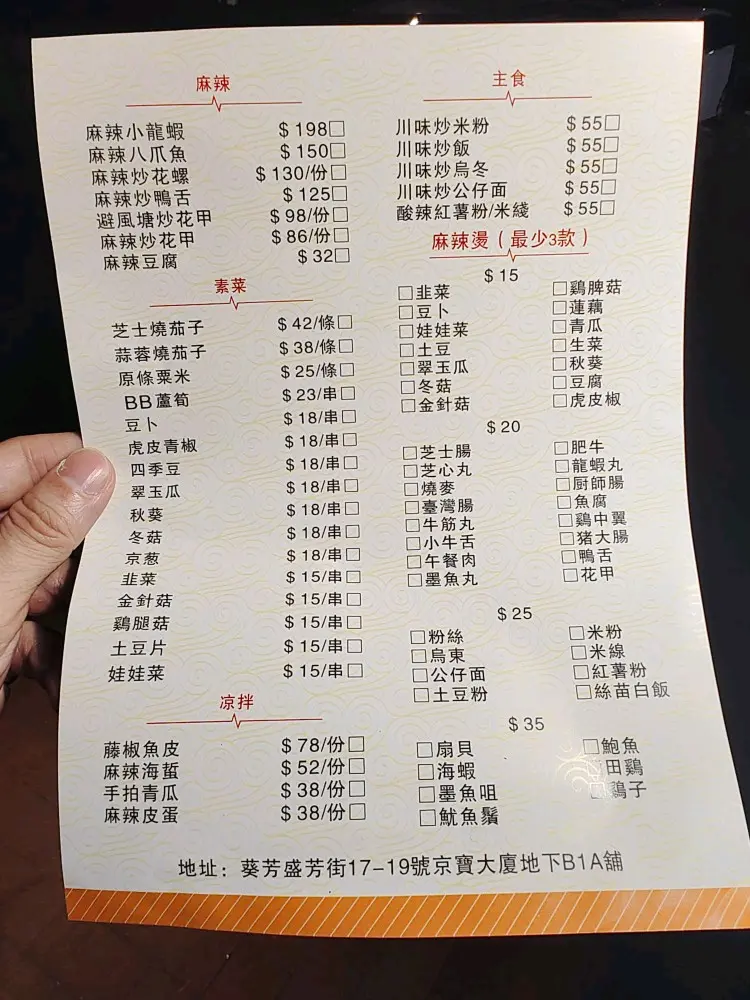 麻辣
麻辣小龍蝦 $198□
麻辣八爪魚 $150□
麻辣炒花螺 $130/份□
麻辣炒鴨舌 $125□
避風塘炒花甲 $98/份□
麻辣炒花甲 $86/份□
麻辣豆腐 $32□
素菜
芝士燒茄子 $42/條□
蒜蓉燒茄子 $38/條□
原條粟米 $25/條□
BB蘆筍 $23/串□
豆卜 $18/串□
虎皮青椒 $18/串□
四季豆 $18/串□
翠玉瓜 $18/串□
秋葵 $18/串□
冬菇 $18/串□
京葱 $18/串□
韭菜 $15/串□
金針菇 $15/串□
鷄腿菇 $15/串□
土豆片 $15/串□
娃娃菜 $15/串□
凉拌
藤椒魚皮 $78/份□
麻辣海蜇 $52/份□
手拍青瓜 $38/份□
麻辣皮蛋 $38/份□
主食
川味炒米粉 $55□
川味炒飯 $55□
川味炒烏冬 $55□
川味炒公仔面 $55□
酸辣紅薯粉/米綫 $55□
麻辣燙（最少3款）
$15
□韭菜 □鷄脾菇
□豆卜 □蓮藕
□娃娃菜 □青瓜
□土豆 □生菜
□翠玉瓜 □秋葵
□冬菇 □豆腐
□金針菇 □虎皮椒
$20
□芝士腸 □肥牛
□芝心丸 □龍蝦丸
□燒麥 □厨師腸
□臺灣腸 □魚腐
□牛筋丸 □鷄中翼
□小牛舌 □猪大腸
□午餐肉 □鴨舌
□墨魚丸 □花甲
$25
□粉絲 □米粉
□烏東 □米線
□公仔面 □紅薯粉
□土豆粉 □絲苗白飯
$35
□扇貝 □鮑魚
□海蝦 □田鷄
□墨魚咀 □鷄子
□魷魚鬚
地址：葵芳盛芳街17-19號京寶大廈地下B1A舖